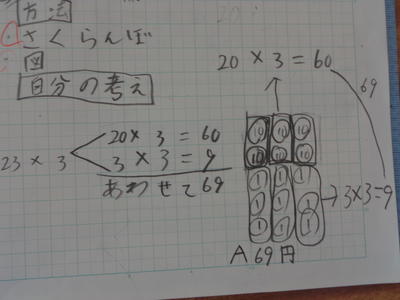 方法
・さくらんぼ
・図
自分の考え
23 × 3
20 × 3 = 60
3 × 3 = 9
あわせて69
20 × 3 = 60
69
10 10 10
10 10 10
1 1 1
1 1 1
1 1 1
→3×3=9
A 69円